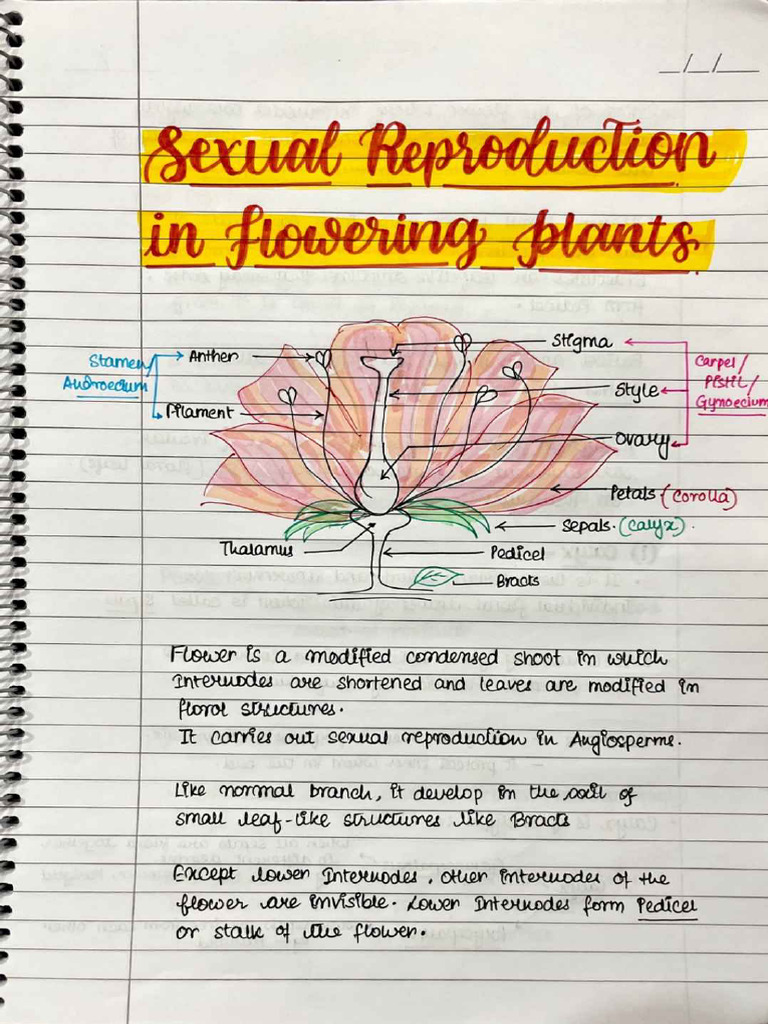 __/__/____
Sexual Reproduction
in flowering plants
Stamen/
Androecium
Anther
Filament
Stigma
Style
Ovary
Carpel/
Pistil/
Gynoecium
Petals (corolla)
Sepals. (calyx)
Thalamus
Pedicel
Bracts
Flower is a modified condensed shoot in which
Internodes are shortened and leaves are modified in
floral structures.
It carries out sexual reproduction in Angiosperms.
Like normal branch, it develop in the axil of
small leaf-like structures like Bracts
Except lower Internodes, other internodes of the
flower are invisible. Lower Internodes form Pedicel
or stalk of the flower.